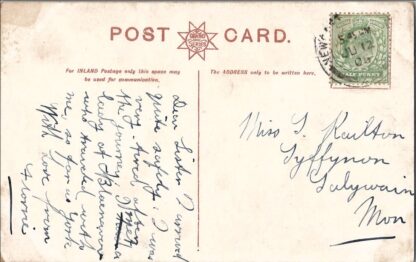 POST CARD.
For INLAND Postage only this space may
be used for communication.
The ADDRESS only to be written here.
HALF PENNY
Dear Sister I arrived
quite safely. I was
very tired after
the journey. I met a
lady at
who travelled with
me, so far as York
With love from
Florrie
Miss S. Keilton
Tyffynon
Talywain
Mon